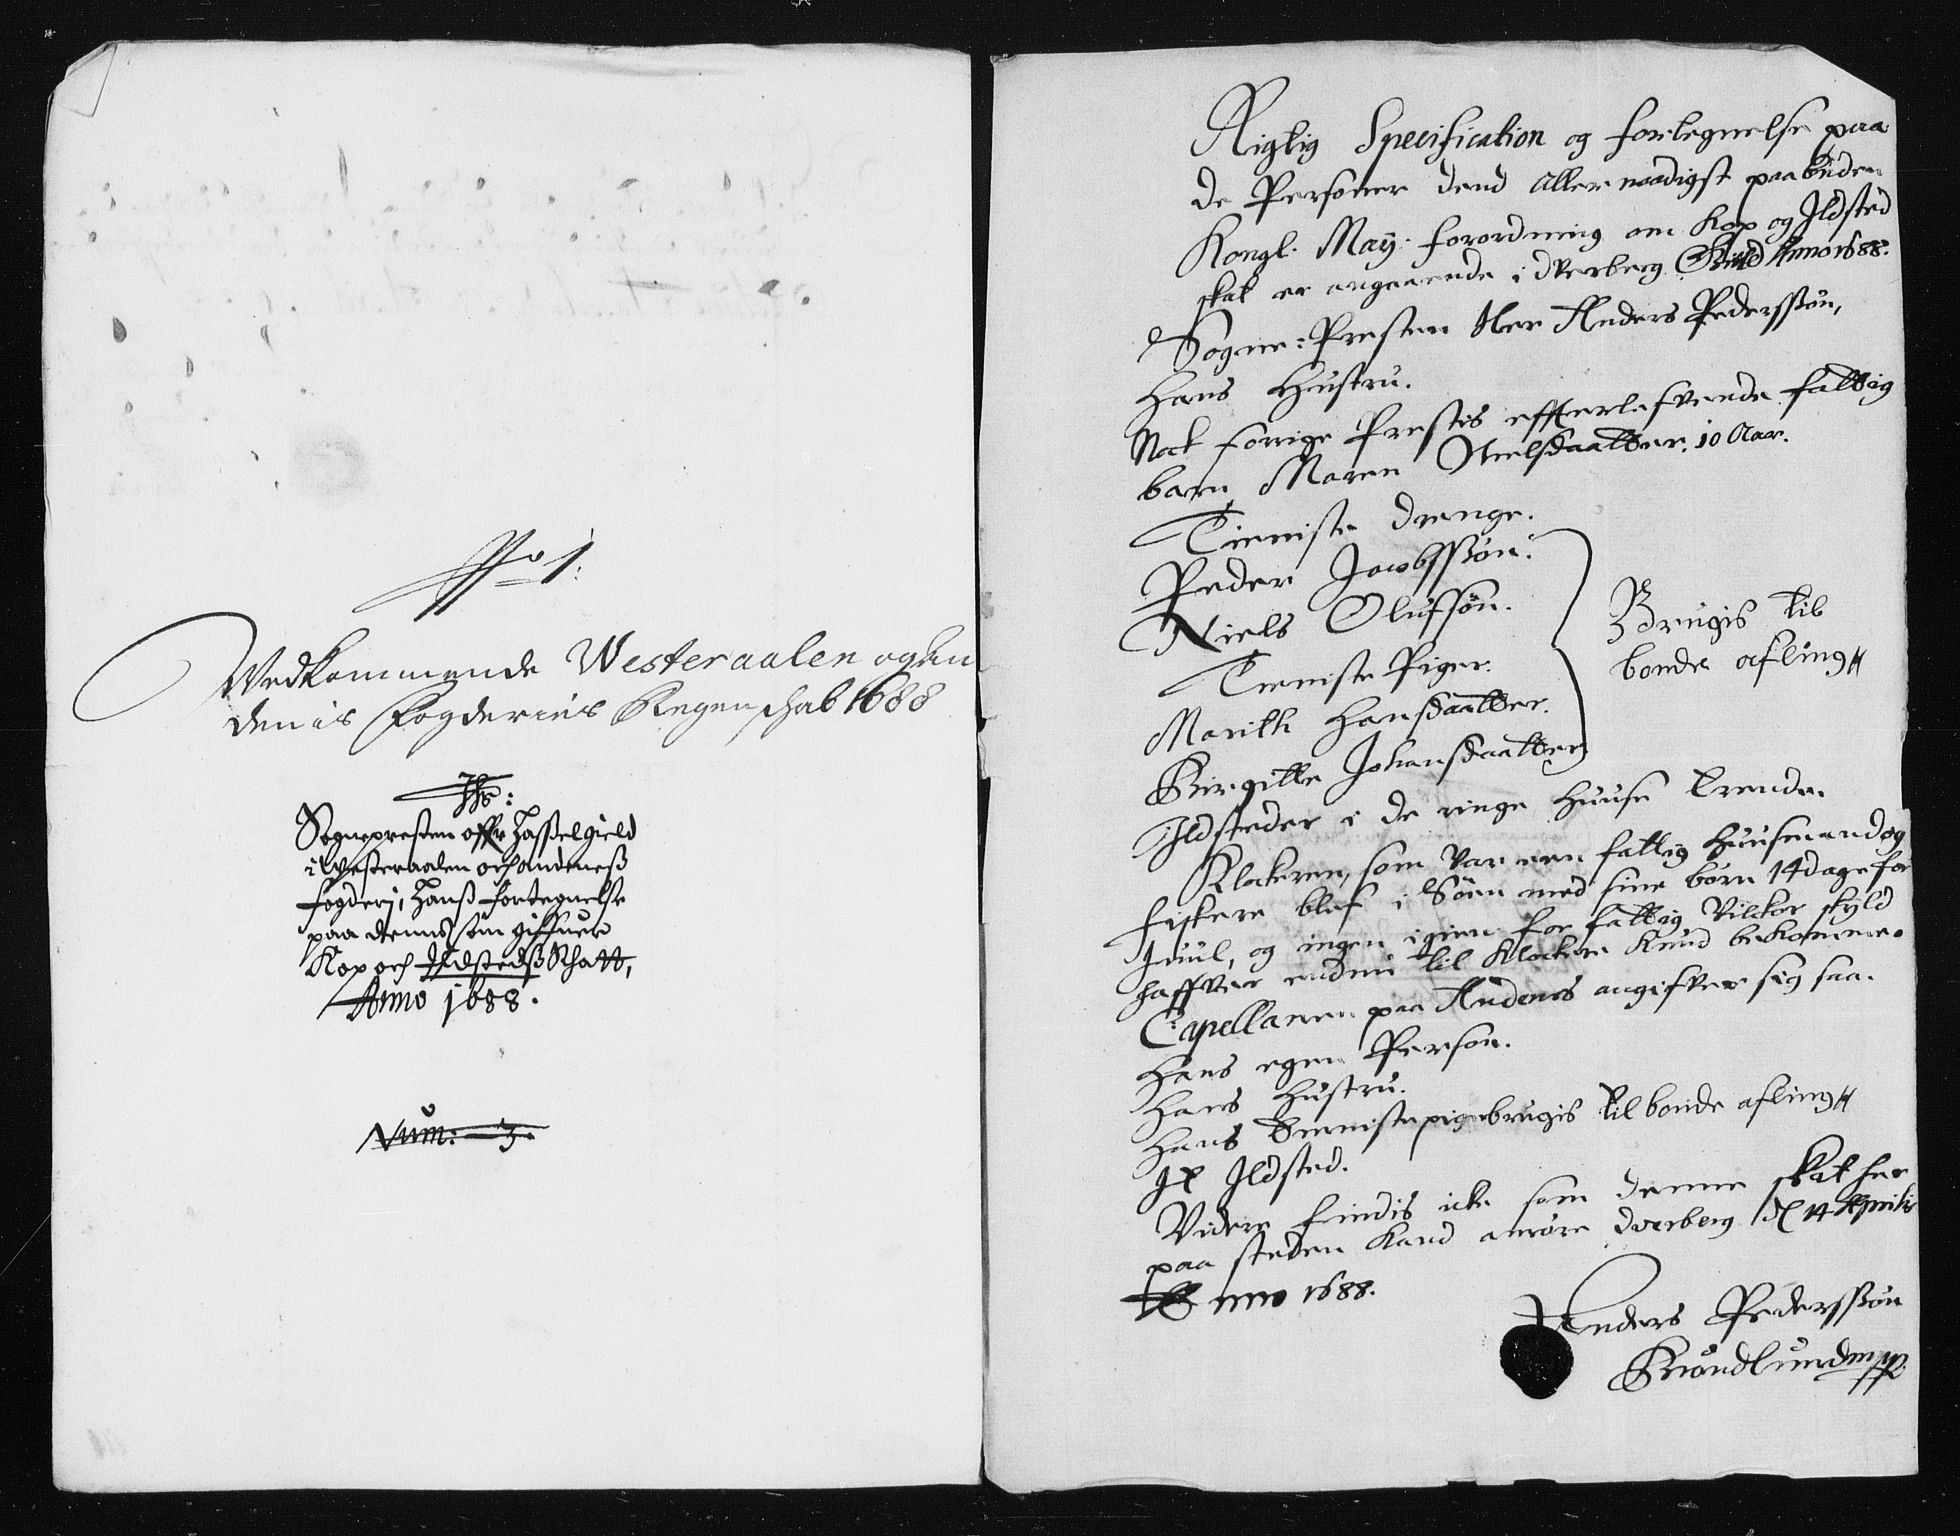 No 1:
Vedkommende Westeraalen og An
denis Fogderies Regenschab 1688
Jhs:
Sognepresten offr Hassel gield
i Westeraalen och andeness
fogderj, Hanss fortegnelse
paa dennd som giffuer
Kop och Jldstedss Skatt,
Anno 1688.
Num: 3.
Rigtig Specification og fortegnelse paa
de Personer dend allernaadigst paabuden
Kongl. May. forordning om Kop og Jldsted
skat er angaaende i Dverberg Gield Anno 1688.
Sogne-Presten Her Anders Pederssøn,
Hans Hustru.
Nock forrige Prestis effterlefvende fattig
barn Maren Nielsdaatter. 10 Aar.
Tieniste drenge.
Peder Jacobssøn.
Niels Olufsøn.
Tieniste Piger.
Marith Hansdaatter.
Birgitte Johansdaatter
Brugis til
bonde afling
Jldsteder i de ringe huuse trende.
Klokeren, som var een fattig huusmand og
fiskere blef i Søen med sine børn 14 dage for
Juul, og ingen igien for fattig Vilckor skyld
haffver endnu til Klocker kund bekomme.
Capellanen paa Andenes angifver sig saa.
Hans egen Person.
Hans Hustru.
Hans Tienistepige brugis til bonde afling
Jt Jldsted.
Videre findis icke som denne skat her
paa steden kand anrøre Dverberg d 14 Aprilis
Anno 1688.
Anders Pederssøn
Grøndlund mpp.